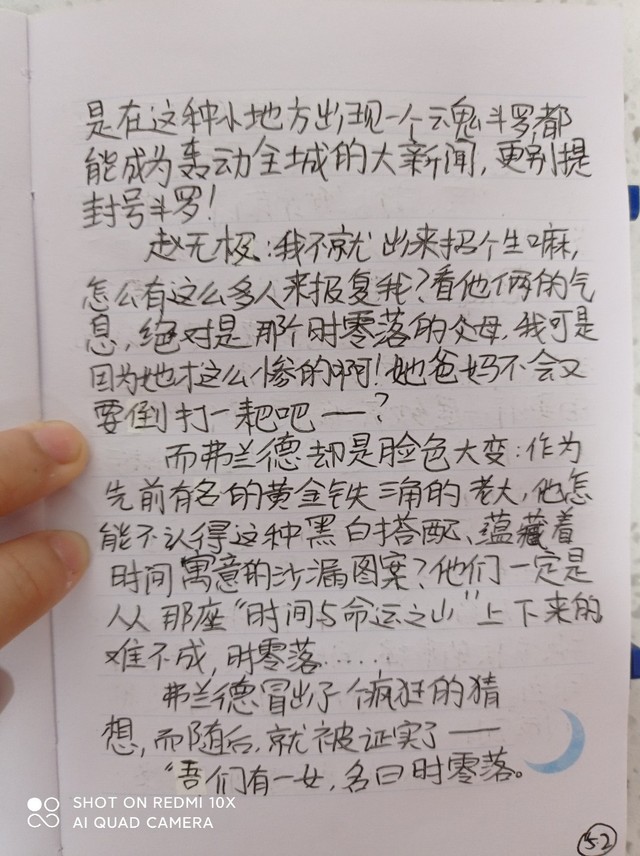 是在这种小地方出现一个魂斗罗都
能成为轰动全城的大新闻，更别提
封号斗罗！
赵无极：我不就出来招个生嘛，
怎么有这么多人来报复我？看他俩的气
息，绝对是那个时零落的父母，我可是
因为她才这么惨的啊！她爸妈不会又
要倒打一耙吧——？
而弗兰德却是脸色大变：作为
先前有名的黄金铁三角的老大，他怎
能不认得这种黑白搭配、蕴藏着
时间寓意的沙漏图案？他们一定是
从那座“时间与命运之山”上下来的
难不成，时零落……
弗兰德冒出了个疯狂的猜
想，而随后，就被证实了——
“吾们有一女，名曰时零落。
52
SHOT ON REDMI 10X
AI QUAD CAMERA